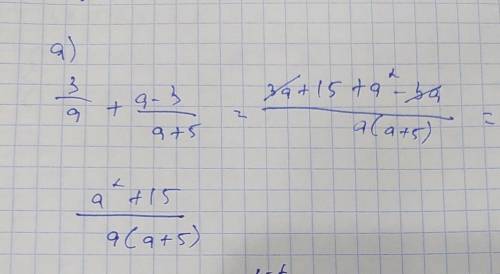 a)
3/a + (a-3)/(a+5) = (3a+15+a²-3a)/(a(a+5)) =
(a²+15)/(a(a+5))